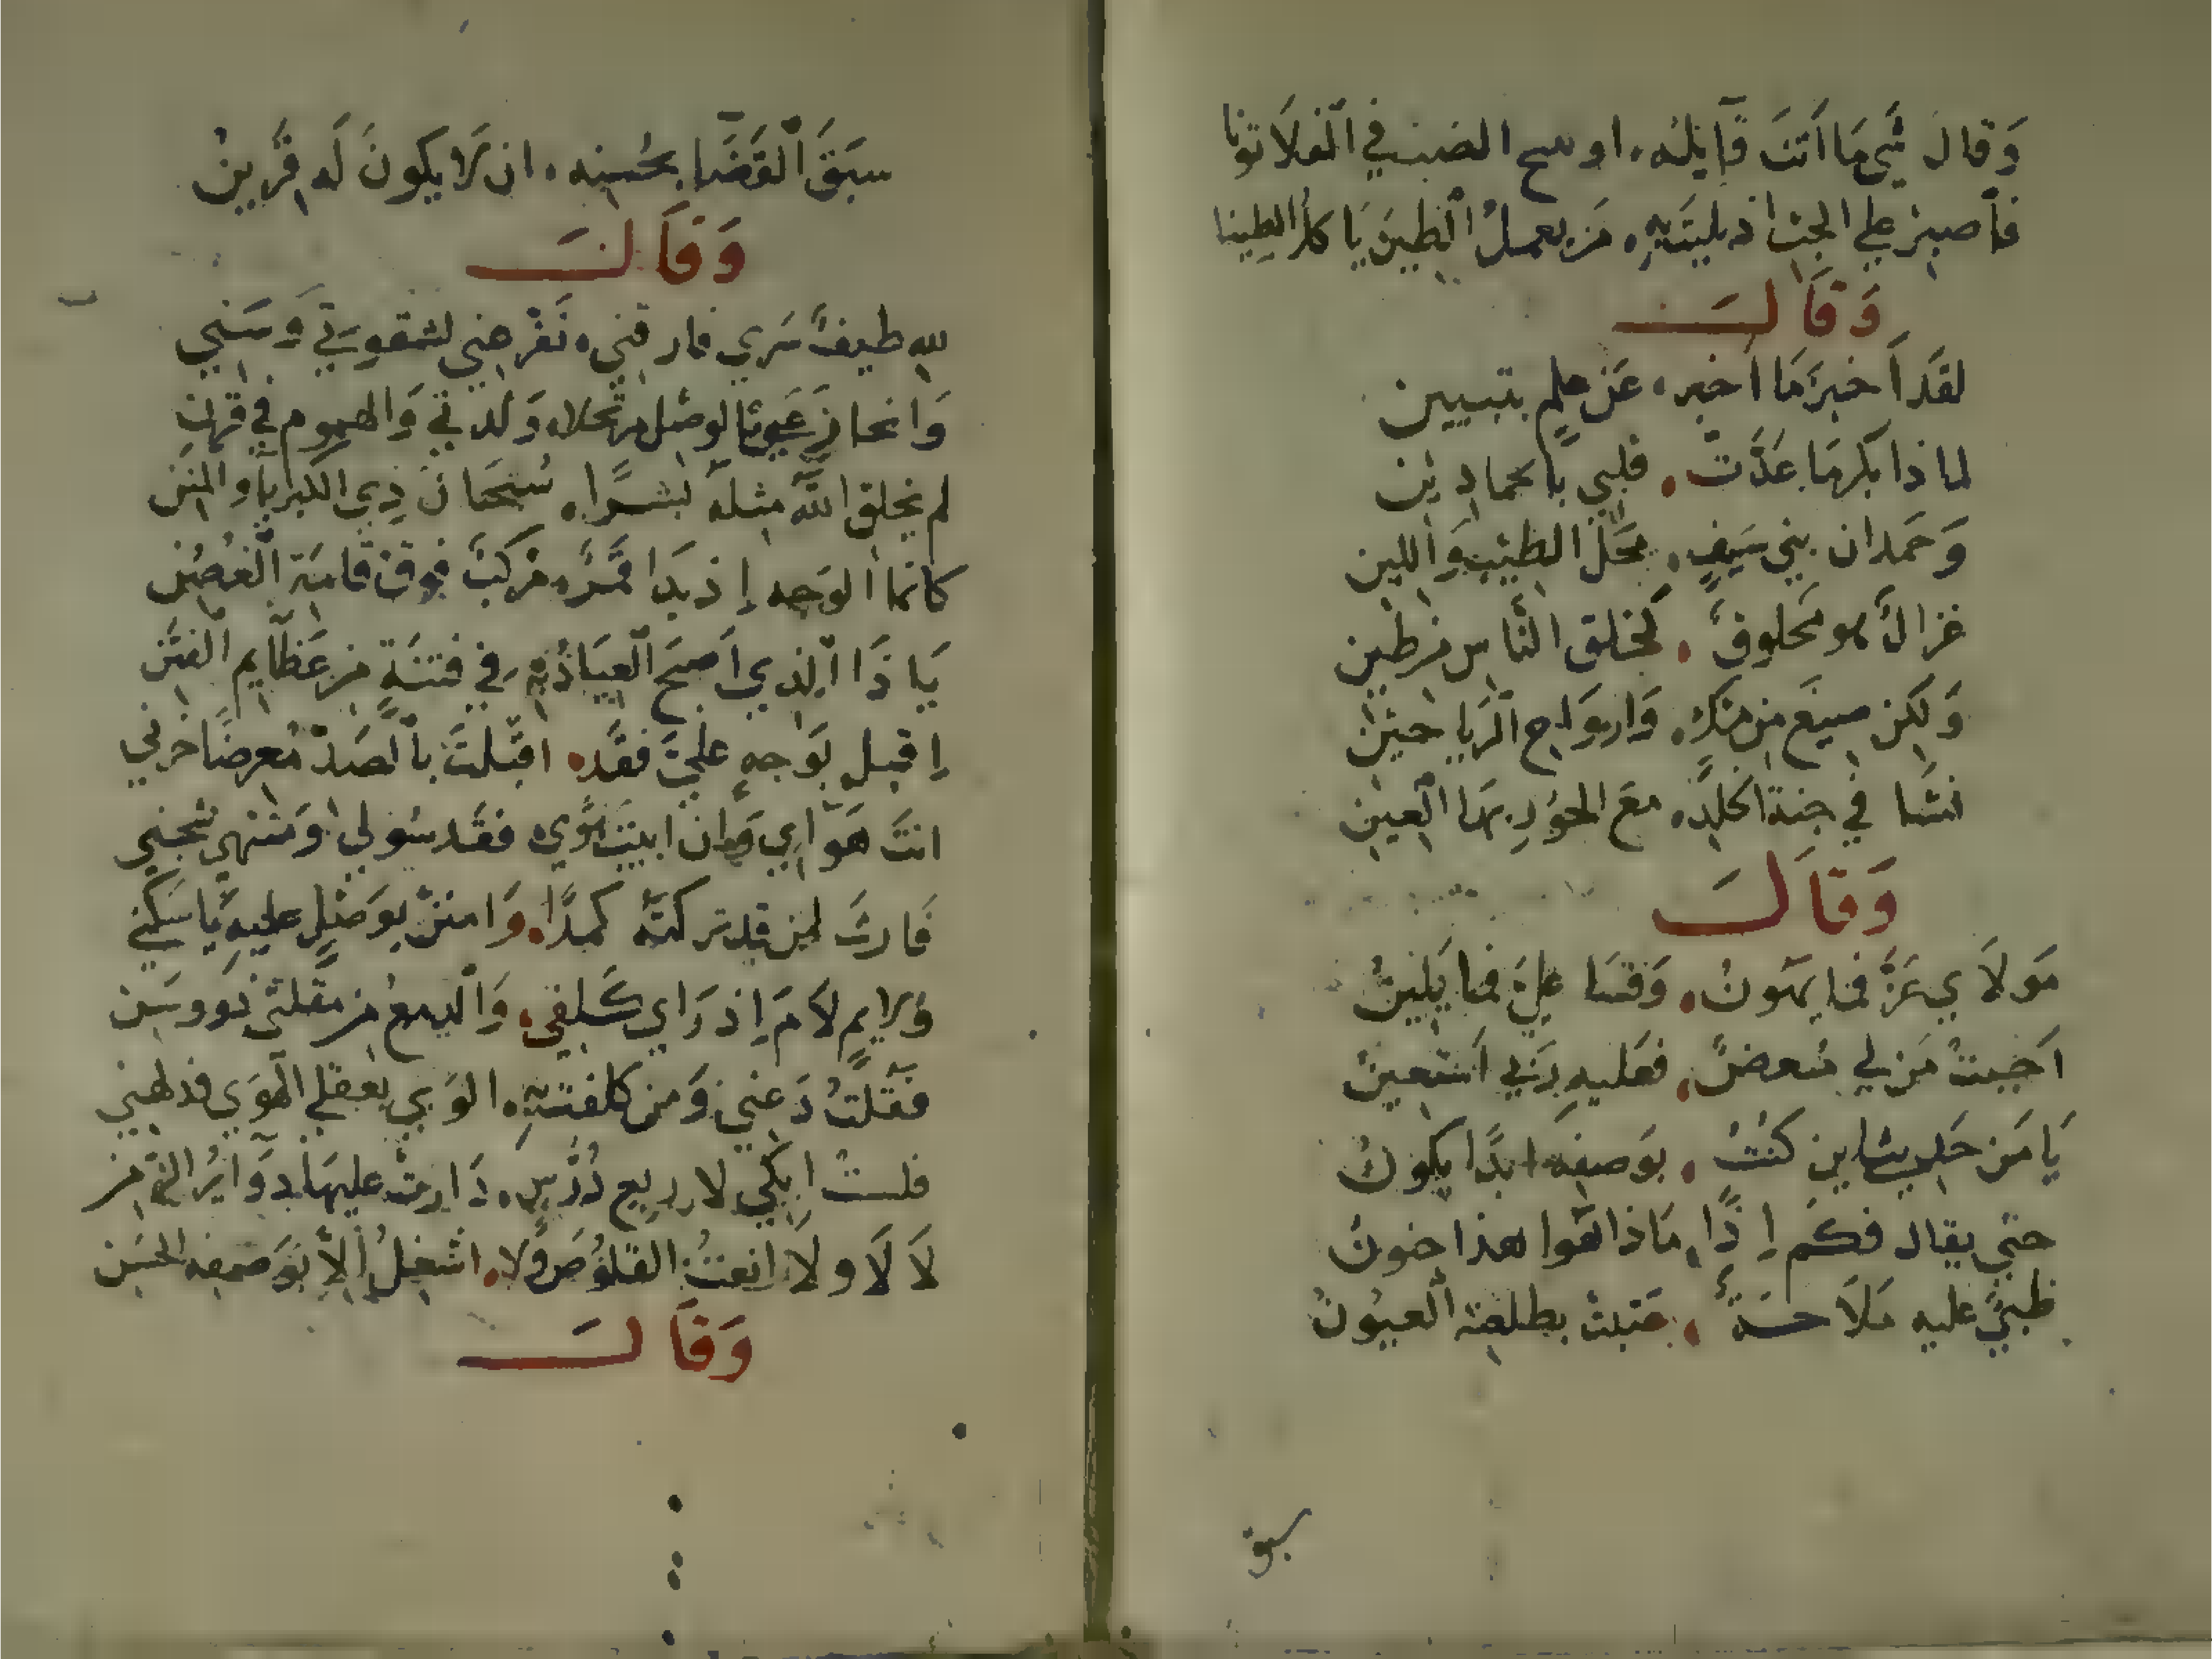 وَقالَ شَي مَا اَنتَ قَايله، او سح الضب في الفلا نونا
فاصبر علي الحب اذ بليت به، مَن يعمل الطين يَا كل الطينا
وَقَالَ
لقَد اَخبرَ مَا اخبر، عَن علمٍ بتبيين
لما ذا بكرهَا عَدَّت، قلبي يا بحمادين
وَحَمدان بني سَيفٍ، محَل الطيب وَاللين
غزالٌ هو مَخلوقٌ، كخلق النَّاس من طين
وَلكن صيغَ من مسك، وَارواح الريا حين
نشا في جنة الخلد، معَ الحور بهَا العين
وَقَالَ
مَولاَي عَزَّ فما يهَونُ، وَقسَا عليَ فما يَلينُ
اَحببتُ مَن لي مُبغضٌ، فعَليهِ رَبي اَستعينُ
يَا مَن حَلي بشاين كنتُ، بوَصفه ابدًا يكونُ
حتي يقال فكم اِذًا، مَاذا هَوا هذا جنونُ
ظبيٌ عليه مَلاَحَةٌ، عَبثت بطلعته العيُونُ
سبق
سبَقَ القَضَا بحُسنه، ان لاَ يكونَ لَه قَرينُ
وَقَالَ
لله طيفٌ سَري فارقني، نَفرَ عني لشقوتي وَسَني
وَانحاز عَني بالوصل مرتحلا، وَلدتي وَالهموم في قرنِ
لم يخلق اللَّه مثلَه بشرًا، سُبحَانَ ذِي الكبريا والمننِ
كانما الوَجه إذ بدَا قمَرٌ، مركبٌ فوقَ قامة الغصُن
يَا ذَا الذي اَصبحَ العبَاد به، في فتنَةٍ من عَظايم الفتَن
اِقبل بوَجهٍ عليَّ فقَد، اقبلتَ بالصَد مُعرضًا حَزني
انتَ هَوَاي وَان ابيتَ هَوي، فقَد سُولي وَمنتهي شجني
فَارثَ لمن قد تركتَه كمدًا، وَامنن بوَصلٍ عليهِ يَا سَكني
وَلايمٍ لاَمَ اِذ رَاي كَلفي، وَالدمعُ من مقلتي ذو وسَن
فقَلتُ دَعني وَمن كلفت به، الوَي بعقلي الهوَي فذ هني
فلستُ اَبكي لاربعٍ دُرُسٍ، دَارت عليهَا دوَايرُ الزمن
لاَ لاَ و لاَ انعتُ القلُوصَ وَلا، اشغلُ اِلاَّ بوَصفه الحسَن
وَقَالَ